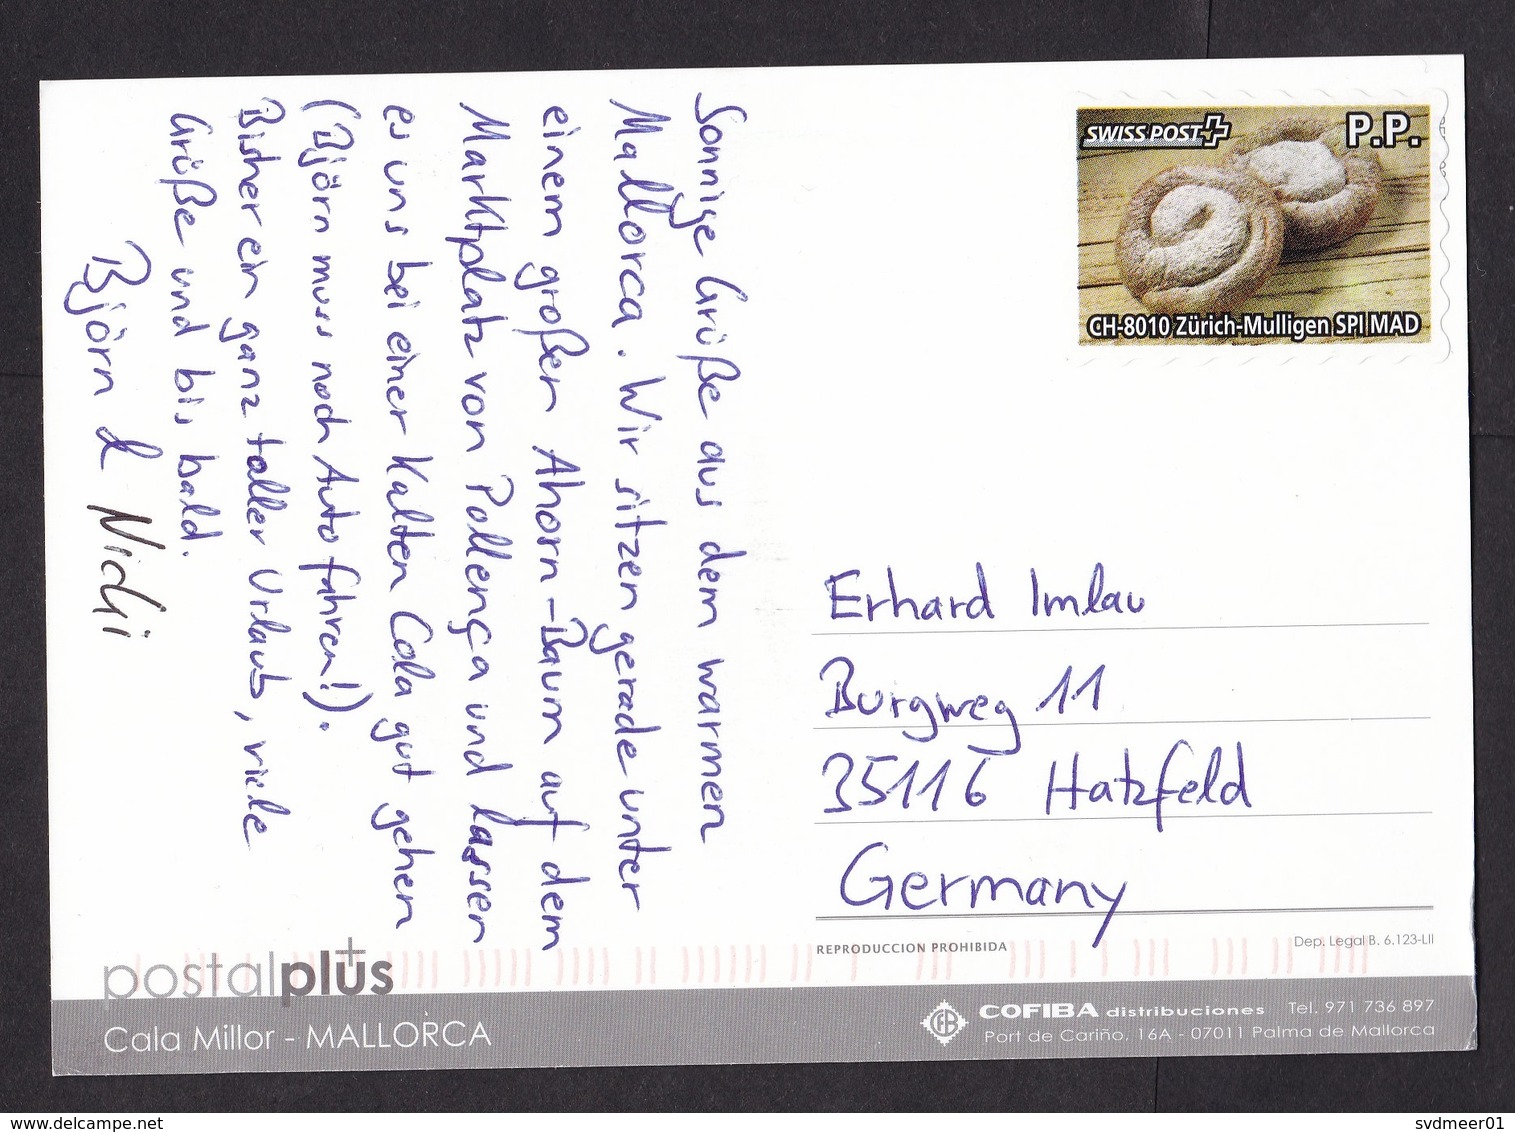 Sonnige Grüße aus dem warmen
Mallorca. Wir sitzen gerade unter
einem großen Ahorn-Baum auf dem
Marktplatz von Pollença und lassen
es uns bei einer kalten Cola gut gehen
(Björn muss noch Auto fahren!).
Bisher ein ganz toller Urlaub, viele
Grüße und bis bald.
Björn & Nicki
SWISS POST P.P.
CH-8010 Zürich-Mulligen SPI MAD
Erhard Imlau
Burgweg 11
35116 Hatzfeld
Germany
REPRODUCCION PROHIBIDA
Dep. Legal B. 6.123-LII
postalplus
Cala Millor - MALLORCA
COFIBA distribuciones Tel. 971 736 897
Port de Cariño, 16A - 07011 Palma de Mallorca
www.delcampe.net
svdmeer01